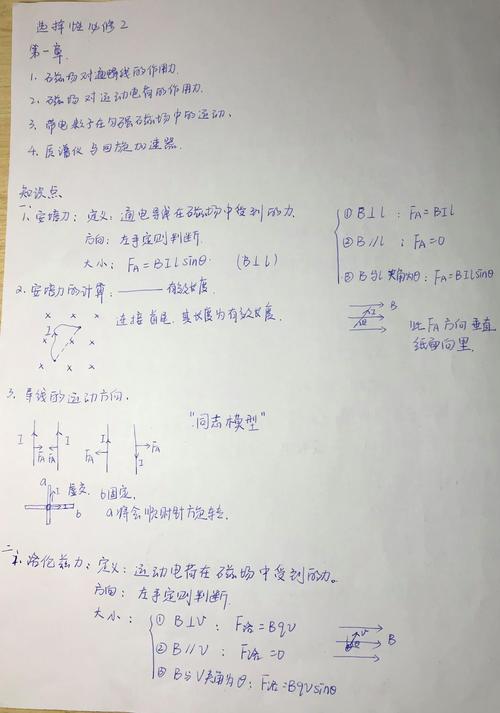 选择性必修2
第一章.
1. 磁场对通电导线的作用力.
2. 磁场对运动电荷的作用力.
3. 带电粒子在匀强磁场中的运动、
4. 质谱仪与回旋加速器.
知识点
一.
1. 安培力: 定义: 通电导线在磁场中受到的力.
方向: 左手定则判断.
大小: F_A = BIl sinθ. (B⊥l)
① B⊥l : F_A = BIl
② B∥l : F_A = 0
③ B与l夹角为θ: F_A = BIl sinθ
2. 安培力的计算: —— 有效长度.
连接首尾, 其长度为有效长度.
× × ×
I
× ×
× × ×
B
I
θ
此 F_A 方向垂直
纸面向里.
3. 导线的运动方向.
"同志模型"
I F_A F_A I
I F_A I F_A
a I 虚交. b固定.
b a将会顺时针方向转.
二. 洛伦兹力: 定义: 运动电荷在磁场中受到的力。
方向: 左手定则判断.
大小:
① B⊥v : F洛 = Bqv
② B∥v : F洛 = 0
③ B与V夹角为θ: F洛 = Bqv sinθ
v
θ
B